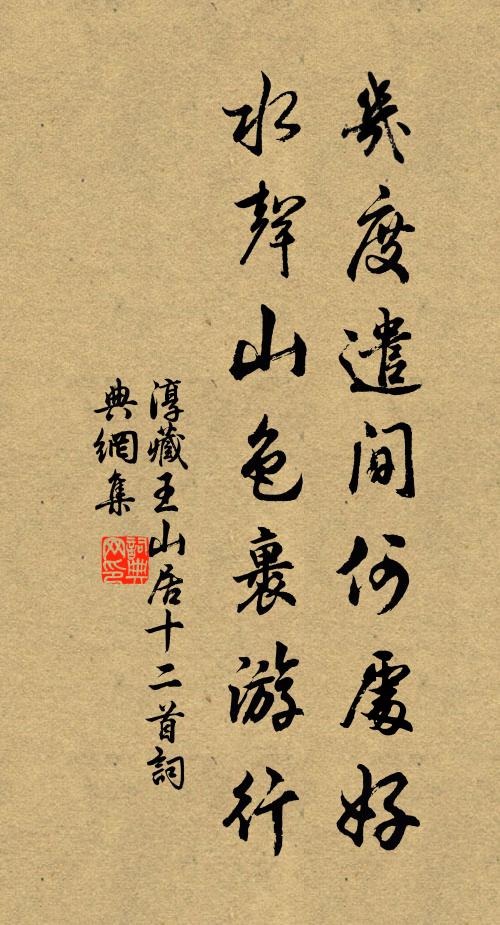 幾度遣閒何處好
水聲山色裏游行
淳藏王山居十二首詞
典網集
詞典
网印